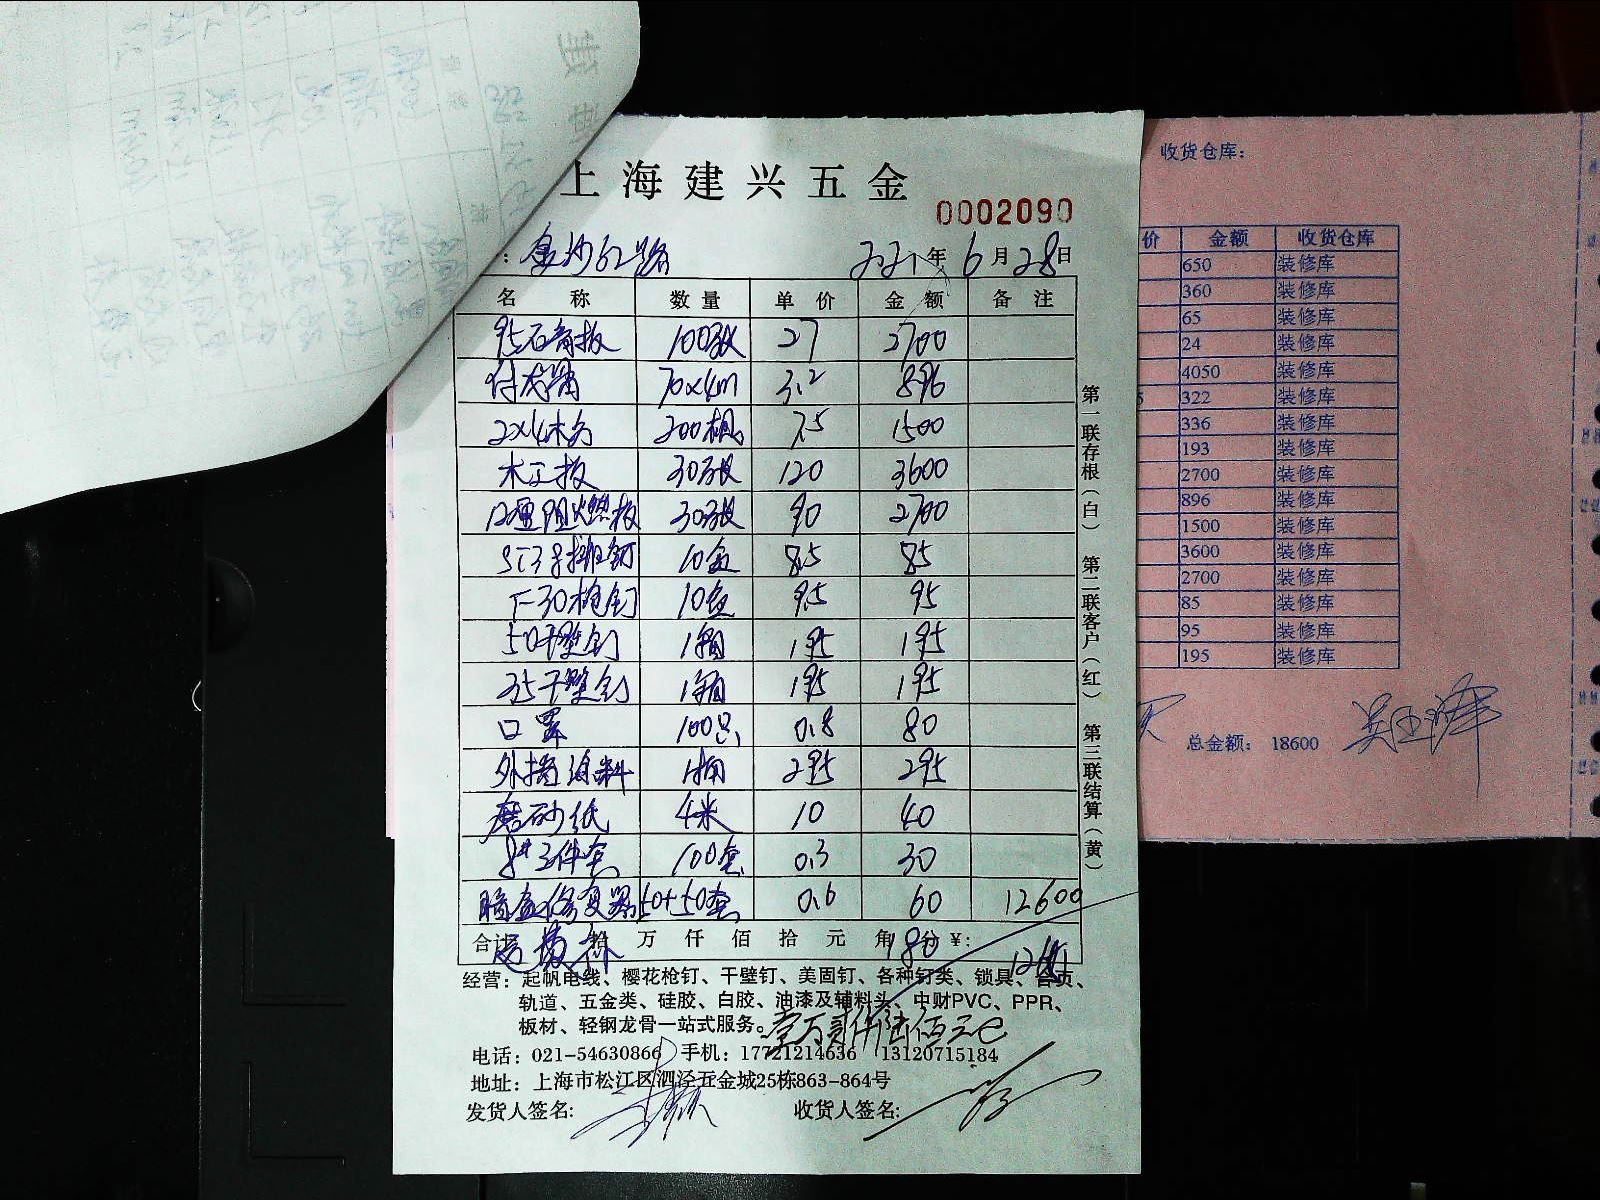 上海建兴五金
0002090
: 金沙江路 2021年6月28日
名称 数量 单价 金额 备注
95石膏板 100张 27 2700
付龙骨 70×4m 3.2 896
2×4木方 200根 7.5 1500
木工板 30张 120 3600
12厘阻燃板 30张 90 2700
ST38排钉 10盒 8.5 85
F-30枪钉 10盒 9.5 95
50干壁钉 1箱 195 195
35干壁钉 1箱 195 195
口罩 100只 0.8 80
外墙涂料 1桶 295 295
磨砂纸 4米 10 40
8#三件套 100套 0.3 30
暗盒修复器 50+50套 0.6 60 12600
合计 拾 万 仟 佰 拾 元 角 分 ¥:
180
经营：起帆电线、樱花枪钉、干壁钉、美固钉、各种钉类、锁具、合页、
轨道、五金类、硅胶、白胶、油漆及辅料头、中财PVC、PPR、
板材、轻钢龙骨一站式服务。
壹万贰仟陆佰元
电话：021-54630866 手机：17721214636 13120715184
地址：上海市松江区泗泾五金城25栋863-864号
发货人签名: 收货人签名:
第一联存根(白) 第二联客户(红) 第三联结算(黄)
收货仓库：
价 金额 收货仓库
650 装修库
360 装修库
65 装修库
24 装修库
4050 装修库
5 322 装修库
336 装修库
193 装修库
2700 装修库
896 装修库
1500 装修库
3600 装修库
2700 装修库
85 装修库
95 装修库
195 装修库
总金额： 18600